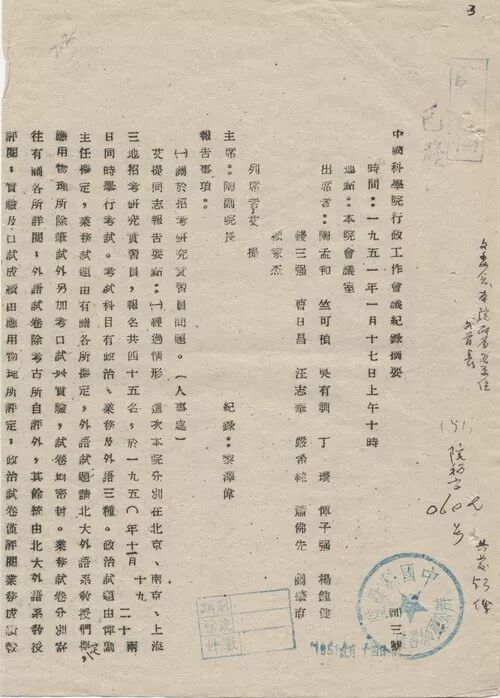 3
(51)
院秘字
060号
共发53份
中國科學院行政工作會議紀錄摘要
時間:一九五一年一月十七日上午十時
地點:本院會議室
出席者:陶孟和 竺可楨 吳有訓 丁瓚 惲子强 楊鍾健
錢三强 曹日昌 汪志華 嚴希純 蕭佛先
列席者 艾提
家杰
主席:陶副院長 紀錄:黎澤偉
報告事項:
(一)關於招考研究實習員問題。(人事處)
艾提同志報告要點:(一)經過情形 這次本院分別在北京、南京、上海
三地招考研究實習員,報名共四十五名,於一九五〇年十二月十九二十兩
日同時舉行考試。考試科目有政治、業務及外語三種。政治試題由
主任擬定,業務試題由有關各所擬定,外語試題請北大外語系教授們擬定,
應用物理所除筆試外另加考口試與實驗,試卷如密封。業務試卷分別寄
往有關各所評閱;外語試卷除考古所自評外,其餘統由北大外語系教授
評閱;實驗及口試成績由應用物理所評定;政治試卷僅評閱業務成績較